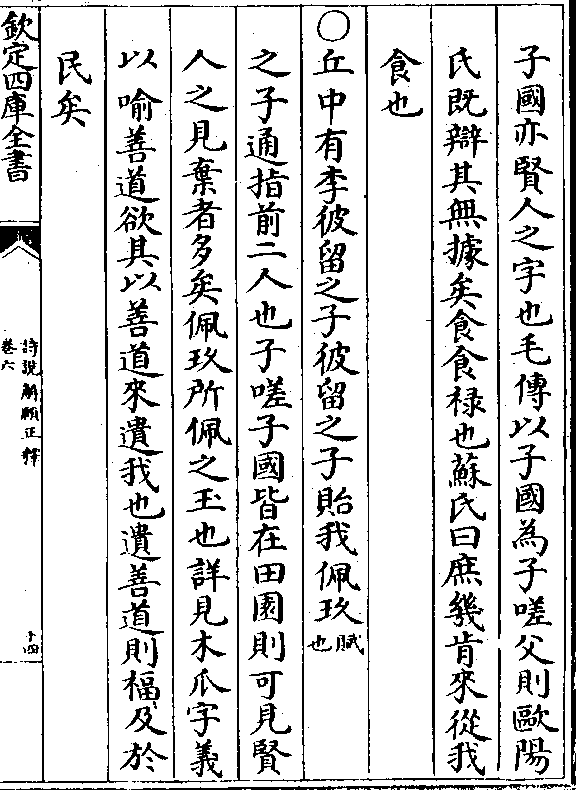 子國亦賢人之字也毛傳以子國為子嗟父則歐陽
氏既辯其無據矣食食祿也蘇氏曰庶幾肯來從我
食也
○丘中有李彼留之子彼留之子貽我佩玖賦也
之子通指前二人也子嗟子國皆在田園則可見賢
人之見棄者多矣佩玖所佩之玉也詳見木瓜字義
以喻善道欲其以善道來遺我也遺善道則福及於
民矣
欽定四庫全書
詩說解頤正釋
卷六
十四